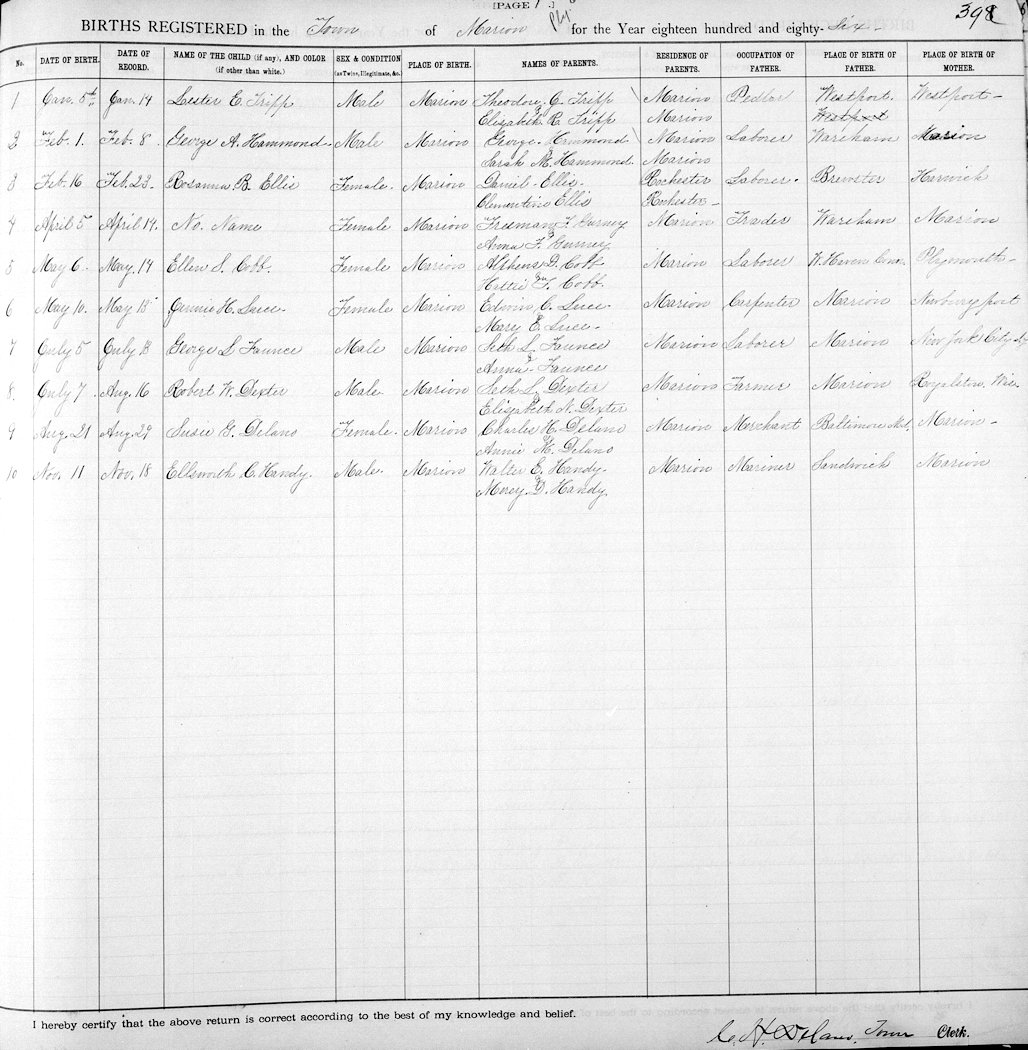 [PAGE 1.] Ply.
398
BIRTHS REGISTERED in the Town of Marion for the Year eighteen hundred and eighty-Six-
No. DATE OF BIRTH. DATE OF RECORD. NAME OF THE CHILD (if any), AND COLOR (if other than white.) SEX & CONDITION (as Twins, Illegitimate, &c.) PLACE OF BIRTH. NAMES OF PARENTS. RESIDENCE OF PARENTS. OCCUPATION OF FATHER. PLACE OF BIRTH OF FATHER. PLACE OF BIRTH OF MOTHER.
1 Jan. 5th Jan. 14 Lester E. Tripp Male Marion Theodore C. Tripp Marion Pedlar Westport. Westport-
& Elizabeth R. Tripp Marion Westport
2 Feb. 1. Feb. 8. George A. Hammond- Male Marion George Hammond Marion Laborer Wareham Marion
& Sarah M. Hammond. Marion
3 Feb. 16 Feb. 23. Rosanna B. Ellis Female. Marion Daniel Ellis- Rochester Laborer. Brewster Harwich
Clementine Ellis Rochester-
4 April 5 April 14. No. Name Female Marion Freeman F. Gurney Marion Trader Wareham Marion
& Anna F. Gurney
5 May 6. May, 14 Ellen S. Cobb. Female Marion Alpheus D. Cobb Marion Laborer W. Haven Conn. Plymouth-
& Hattie F. Cobb.
6 May 10. May 15 Jennie H. Luce- Female Marion Edwin C. Luce Marion Carpenter Marion Newburyport
Mary E. Luce-
7 July 5 July 13 George L Faunce Male Marion Seth L. Faunce Marion Laborer Marion New York City
& Anna- Faunce
8 July 7. Aug. 16 Robert W. Dexter Male. Marion Seth L. Dexter Marion Farmer Marion Royalston, Wis.
& Elizabeth N. Dexter
9 Aug. 21 Aug. 29 Susie G. Delano Female. Marion Charles H. Delano Marion Merchant Baltimore Md. Marion-
& Annie H. Delano
10 Nov. 11 Nov. 18 Ellsworth C. Handy. Male. Marion Walter E. Handy. Marion Mariner Sandwich Marion
& Mercy D. Handy
I hereby certify that the above return is correct according to the best of my knowledge and belief.
C. H. Delano, Town Clerk.